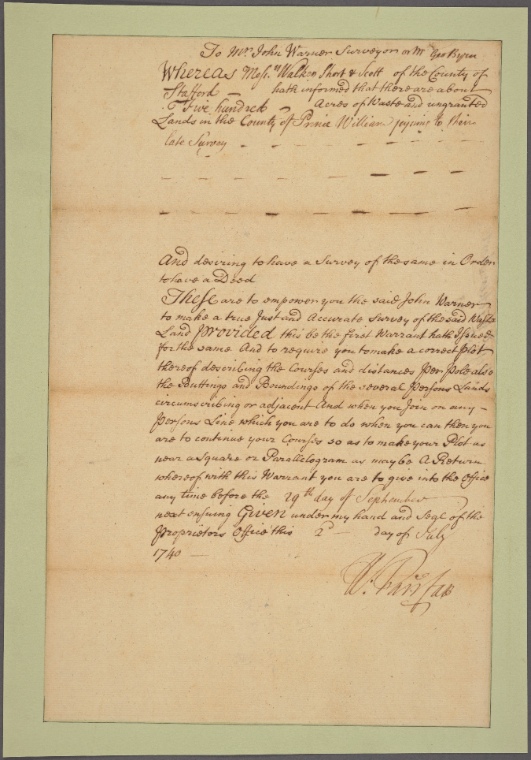 To Mr. John Warner Surveyor or Mr. Geo Byrn
Whereas Messrs. Walker Short & Scott of the County of
Stafford hath informed that there are about
Five hundred Acres of Waste and ungranted
Lands in the County of Prince William joyning to their
late Survey
And desiring to have a Survey of the same in Order
to have a Deed
These are to empower you the said John Warner
to make a true Just and Accurate Survey of the said Waste
Land provided this be the first Warrant hath Issued
for the same And to require you to make a correct plot
thereof describing the Courses and distances per pole also
the Buttings and Boundings of the several persons Lands
circumscribing or adjacent And when you Join on any
persons Line which you are to do when you can then you
are to continue your Courses so as to make your Plot as
near a square or Parallelogram as may be A Return
whereof with this Warrant you are to give into the Office
any time before the 29th day of September
next ensuing Given under my hand and Seal of the
Proprietors Office this 2d day of July
1740
W. Fairfax